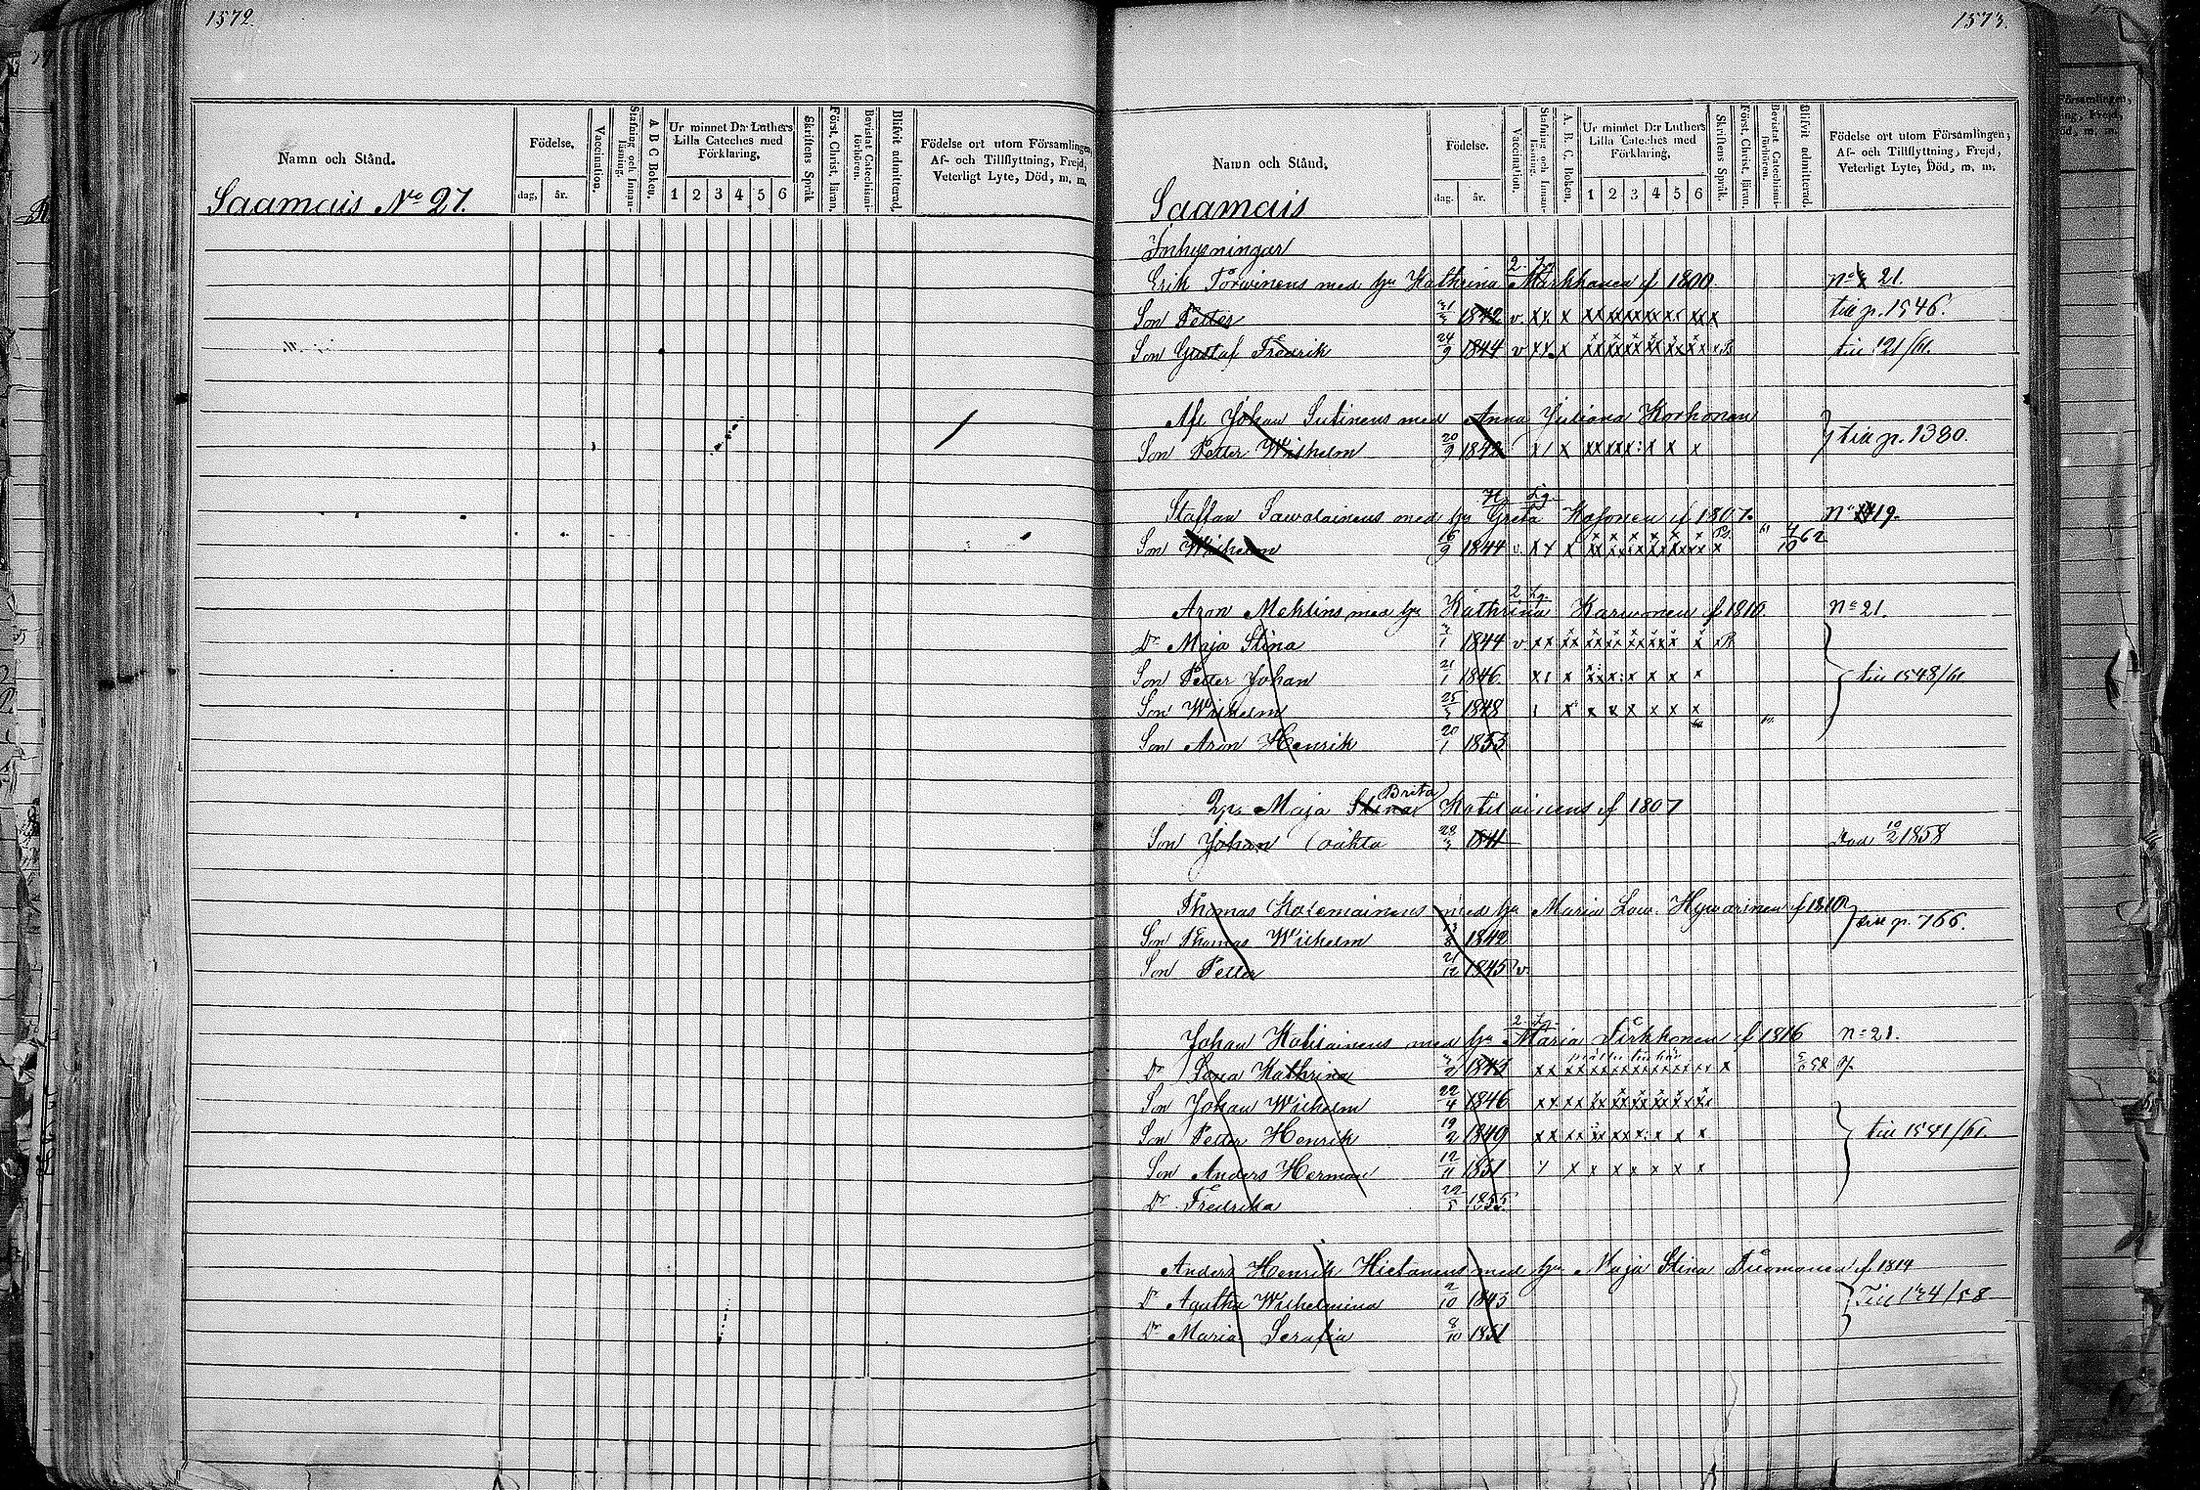 1572
Namn och Stånd.
Födelse.
dag, år.
Vaccination.
Stafning och Innan-läsning.
A B C Boken.
Ur minnet D:r Luthers Lilla Cateches med Förklaring.
1 2 3 4 5 6
Skriftens Språk
Först. Christ. läran.
Bevistat Catechismi-förhören.
Blifvit admitterad.
Födelse ort utom Församlingen, Af- och Tillflyttning, Frejd, Veterligt Lyte, Död, m. m.
Saamais No 27.
1573.
Namn och Stånd.
Födelse.
dag. år.
Vaccination.
Stafning och Innan-läsning.
A. B. C. Boken.
Ur minnet D:r Luthers Lilla Cateches med Förklaring.
1 2 3 4 5 6
Skriftens Språk.
Först. Christ. läran.
Bevistat Catechismi-förhören.
Blifvit admitterad.
Födelse ort utom Församlingen, Af- och Tillflyttning, Frejd, Veterligt Lyte, Död, m. m.
Saamais
Inhysningar
Erik Torvinens med hu Kathrina Markkanen f 1800 No 21.
Son Petter 1842 v. xx x till p. 1546.
Son Gustaf Fredrik 24/9 1844 v xx x till 121/61.
Afl Johan Sutinens med Anna Juliana Korhonen
Son Petter Wilhelm 20/9 1842 till p. 1380.
Staffan Sawolainens med hu Greta f 1807. No 19.
Son Wilhelm 16/9 1844 v. xx x 62
Aron med hu Kathrina Karvonen f 1810. No 21.
Dr Maja Stina 1844 v xx
Son Petter Johan 21/1 1846 till 1548/61
Son Wilhelm 1848
Son Aron Henrik 20/1 1853
Maja Stina Brita f 1807
Son Johan 1841 Död 10/2 1858
Thomas med hu Maria Lov. Hyvärinen f 1810 till p. 766.
Son Thomas Wilhelm 1842
Son Petter 21/12 1845 v.
Johan med hu Maria Pirkkonen f 1816 No 21.
Dr Kathrina
Son Johan Wilhelm 22/4 1846
Son Petter Henrik 19/2 1849 till 1541/61.
Son Anders Herman 12/11 1851
Dr Fredrika 22/5 1855
Anders Henrik Hietanens med hu Maja Stina f 1814
Dr Agatha Wilhelmina 2/10 1843 Till 124/58
Dr Maria Serafia 8/10 1851